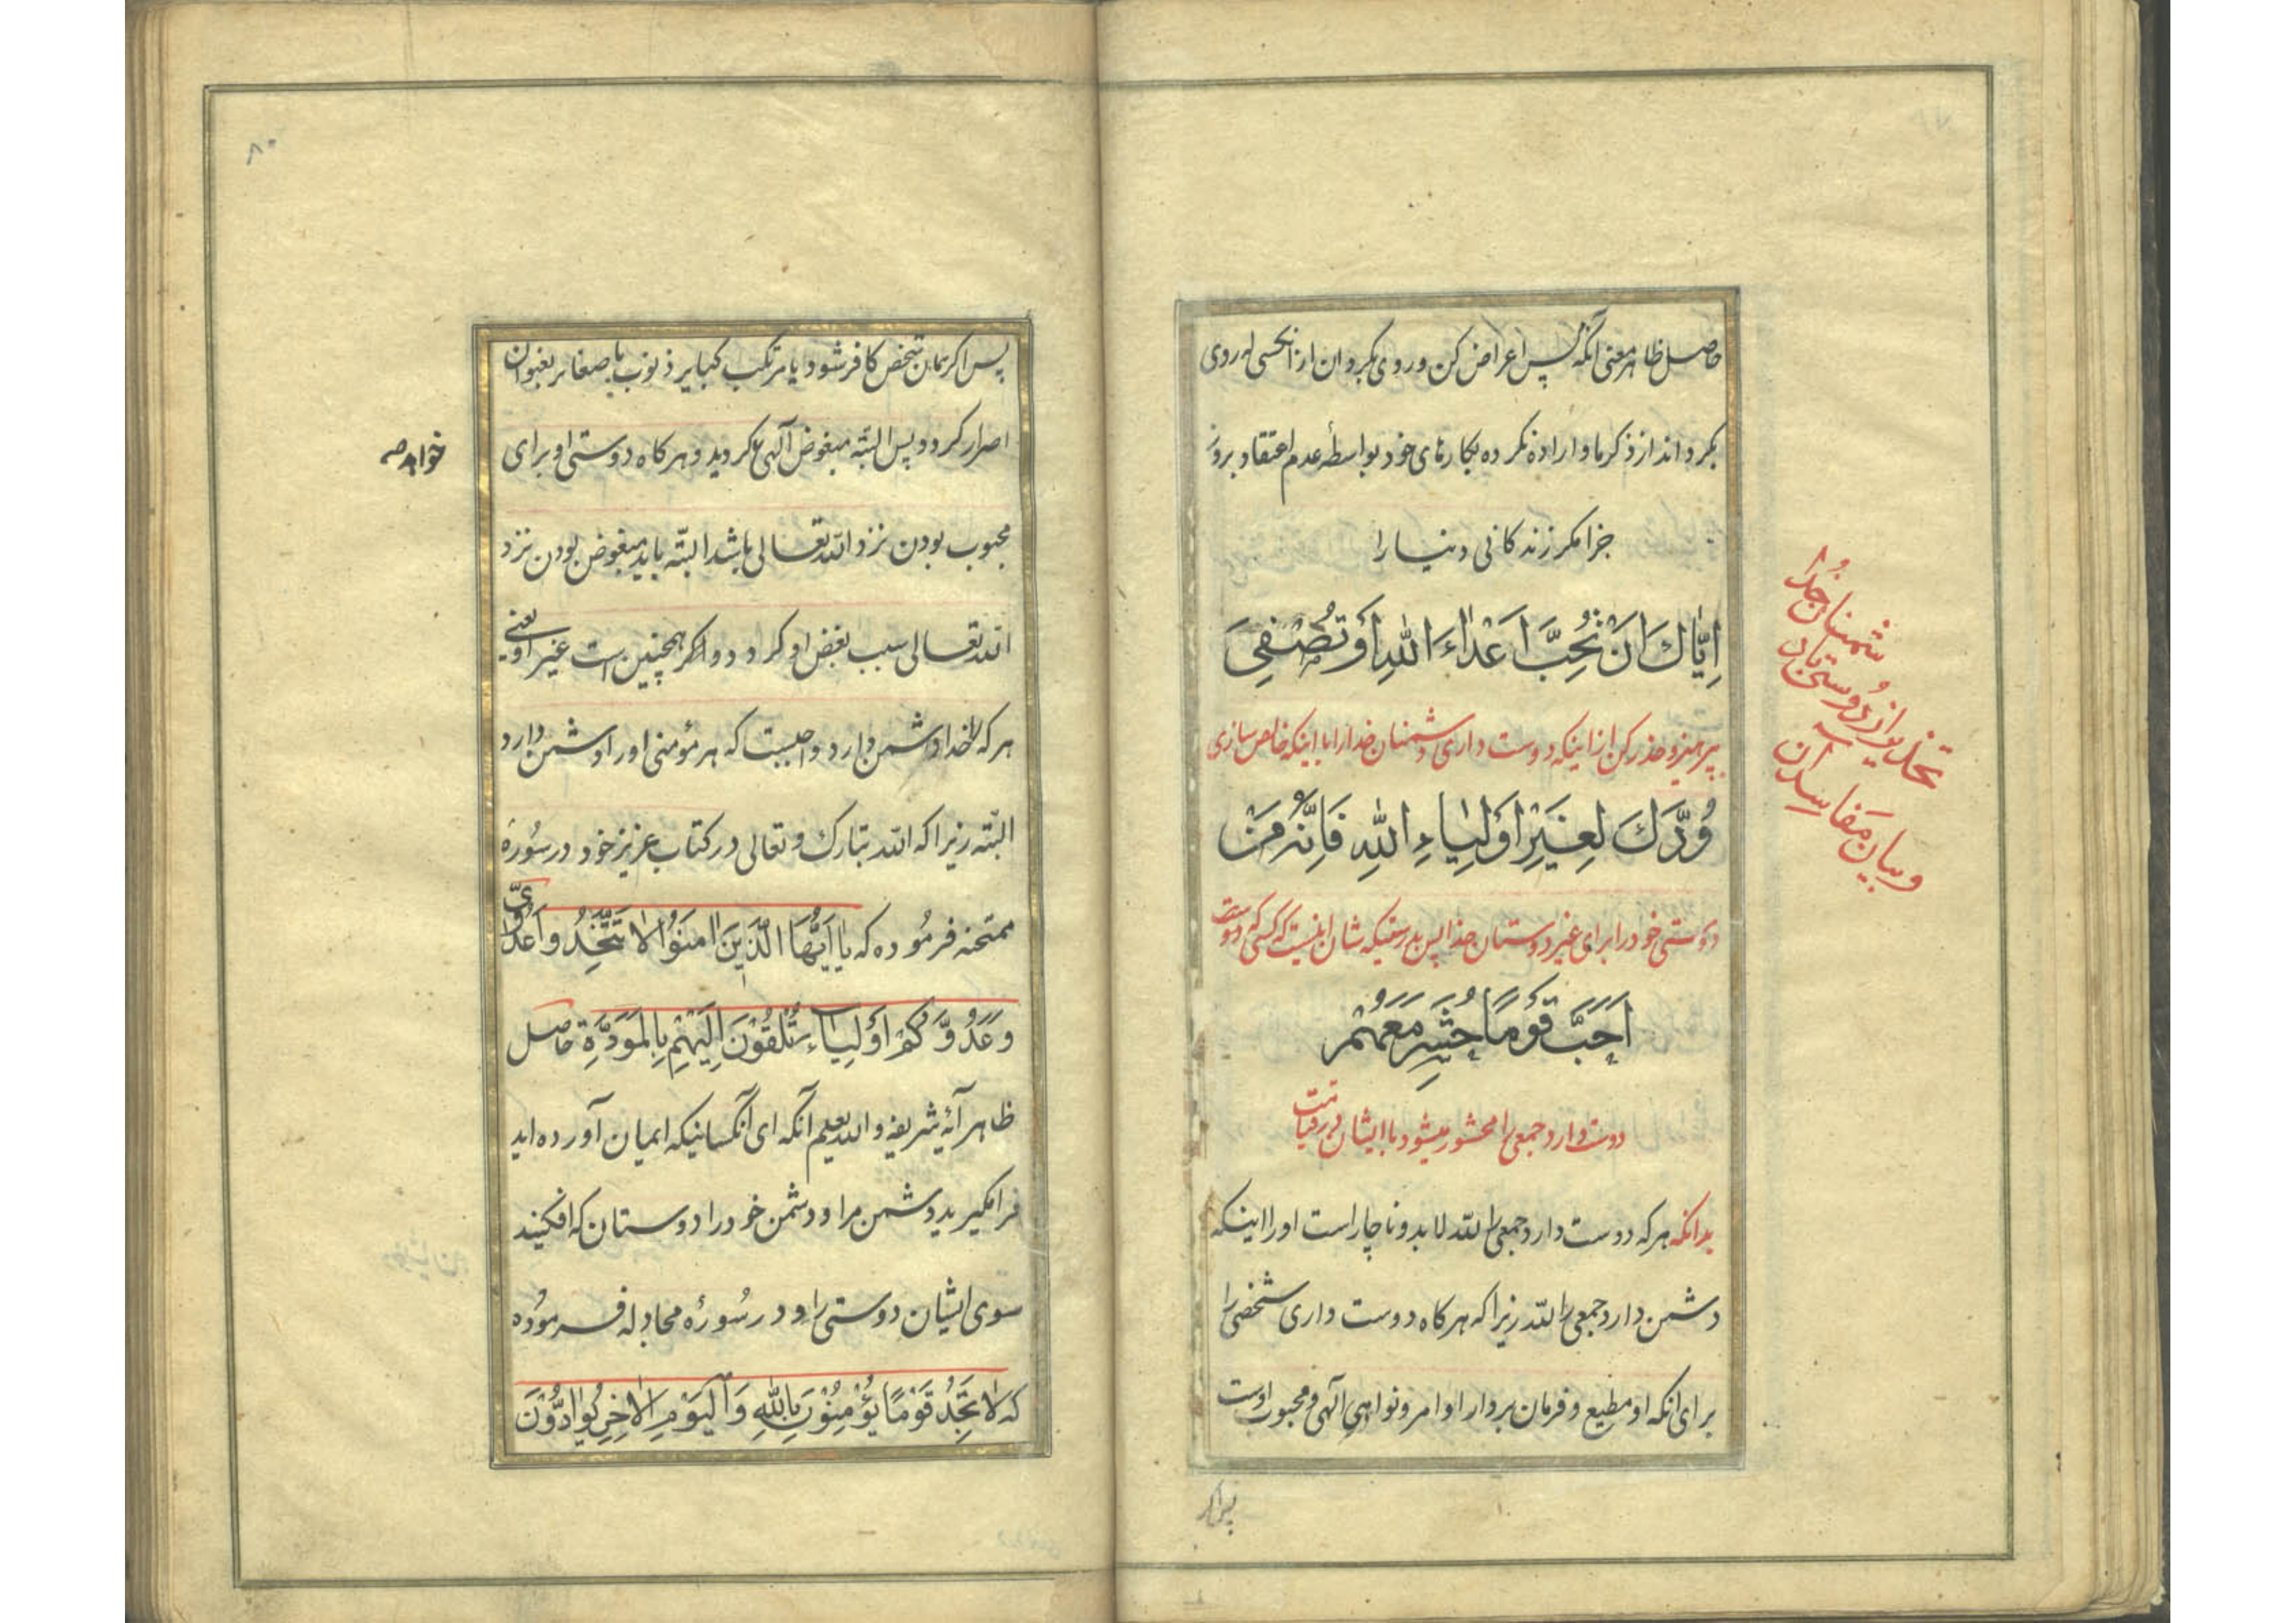 حاصل ظاهر معنی آنکه پس اعراض کن و روی بگردان از آنکسی که روی
بگرداند از ذکر ما و اراده نکرده بکارهای خود بواسطه عدم اعتقاد بروز
جزا مگر زندگانی دنیا را
اِیّاكَ اَنْ تُحِبَّ اَعْدٰاءَ اللّٰهِ اَوْ تُصْفِیَ
بپرهیز و حذر کن از اینکه دوست داری دشمنان خدا را یا اینکه خالص سازی
وُدَّكَ لِغَیْرِ اَوْلِیٰاءِ اللّٰهِ فَاِنَّهُ مَنْ
دوستی خود را برای غیر دوستان خدا پس بدرستیکه شان اینست که کسی که دوست
اَحَبَّ قَوْمًا حُشِرَ مَعَهُمْ
دوست دارد جمعی را محشور میشود با ایشان در قیامت
بدانکه هر که دوست دارد جمعی را لله لابد و ناچار است او را اینکه
دشمن دارد جمعی را لله زیرا که هرکاه دوست داری شخصی را
برای آنکه او مطیع و فرمان بردار اوامر و نواهی الهی و محبوب اوست
پس اکر
دشمنان خدا
تحذیر از دوستی با
و بیان مفاسد آن
۸۰
پس اکر همان شخص کافر شود یا مرتکب کبایر ذنوب یا صغایر بعنوان
اصرار کردد پس البته مبغوض آلهی کردید و هرکاه دوستی او برای
خواهد
محبوب بودن نزد الله تعالی باشد البته باید مبغوض بودن نزد
الله تعالی سبب بغض او کردد و اکر همچنین است غیر او یعنی
هر که را خدا دشمن دارد واجبست که هر مؤمنی او را دشمن دارد
البته زیرا که الله تبارك و تعالی در کتاب عزیز خود در سُورهٔ
ممتحنه فرمُوده که یا اَیُّهَا الَّذینَ اٰمَنُوْا لاٰ تَتَّخِذُوا عَدُوّی
وَعَدُوَّکُمْ اَوْلِیٰاءَ تُلْقُوْنَ اِلَیْهِمْ بِالْمَوَدَّةِ حاصل
ظاهر آیهٔ شریفه والله یعلم آنکه ای آنکسانیکه ایمان آورده اید
فرا مگیرید دشمن مرا و دشمن خود را دوستان که افکنید
سوی ایشان دوستی را و در سُورهٔ مجادله فرمُوده
که لاٰ تَجِدُ قَوْمًا یُؤْمِنُوْنَ بِاللّٰهِ وَالْیَوْمِ الْاٰخِرِ یُوٰادُّوْنَ